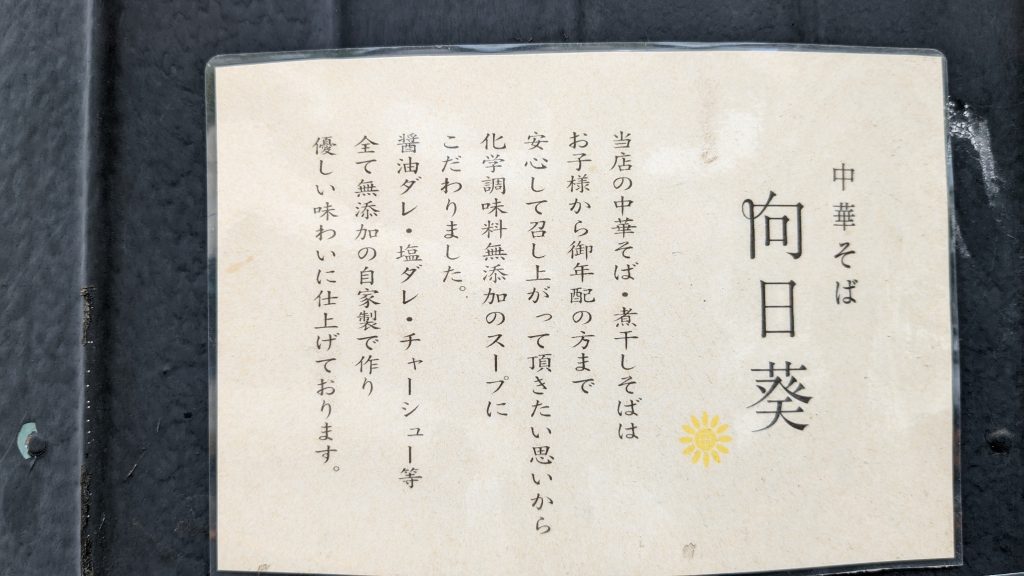 中華そば
向日葵
当店の中華そば・煮干しそばは
お子様から御年配の方まで
安心して召し上がって頂きたい思いから
化学調味料無添加のスープに
こだわりました。
醤油ダレ・塩ダレ・チャーシュー等
全て無添加の自家製で作り
優しい味わいに仕上げております。